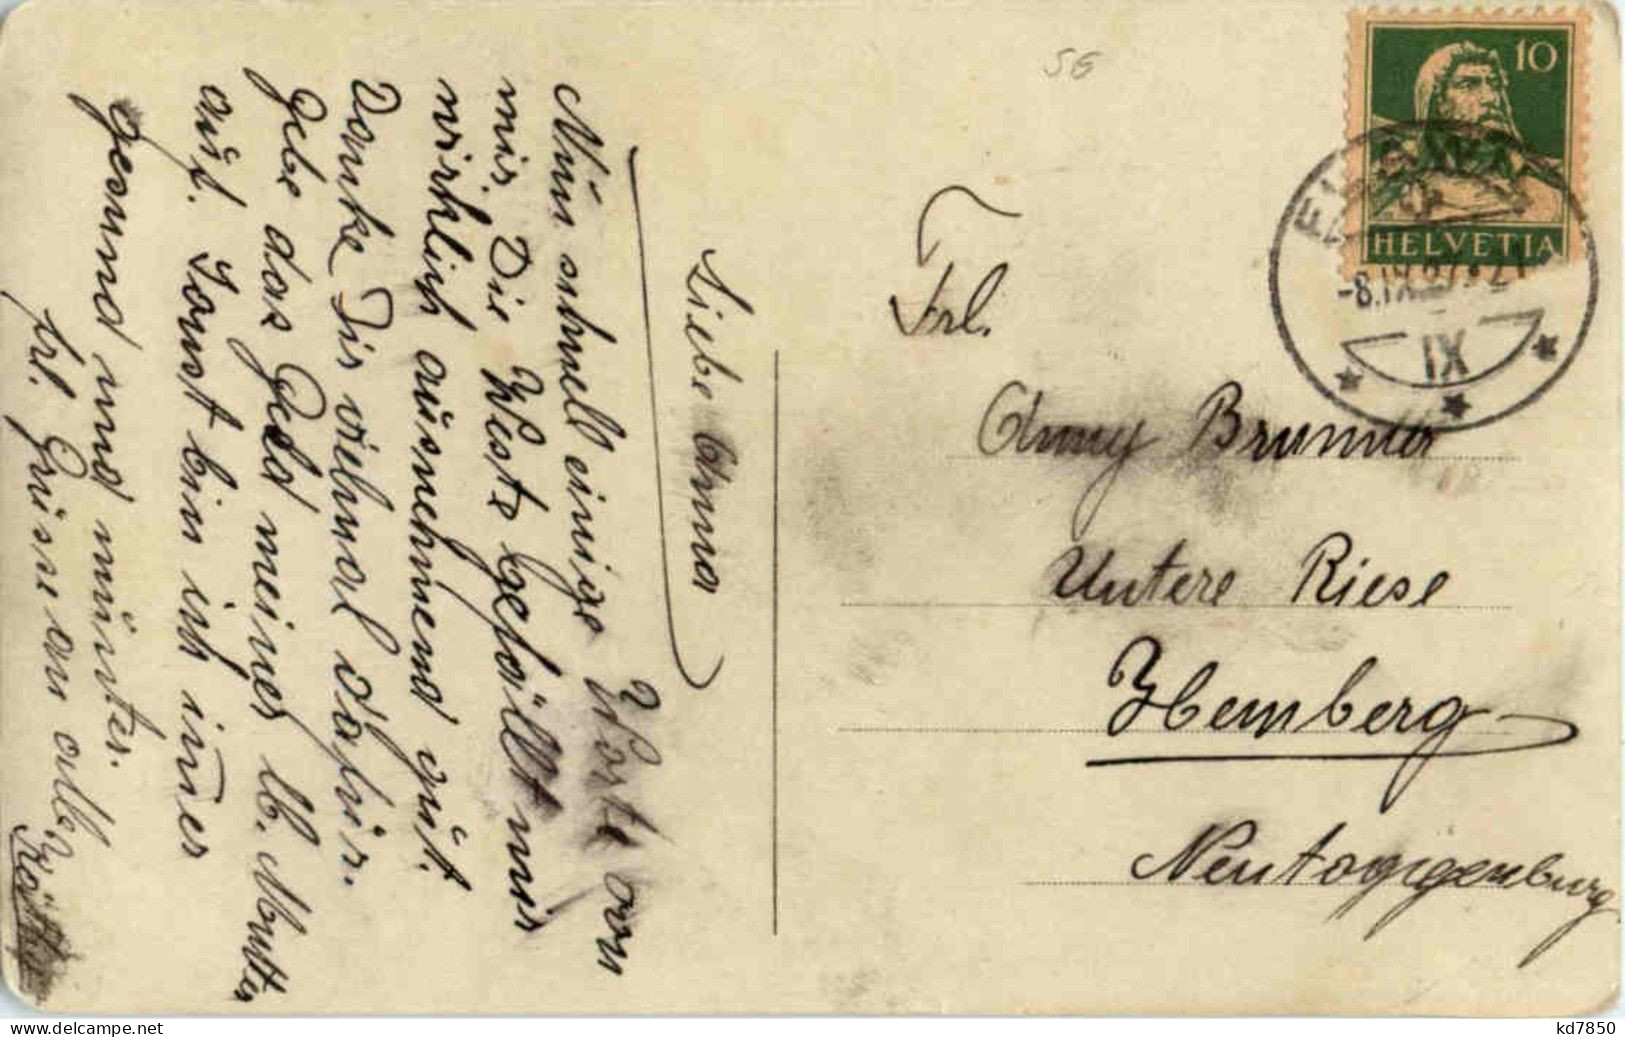 Liebe Anna
Nun schnell einige Worte von
mir. Die Weste gefällt mir
wirklich ausnehmend gut.
Danke Dir vielmal dafür.
Gebe das Geld meiner lb. Mutter
auf. Sonst bin ich immer
gesund und munter.
frl. Grüsse an alle
56
Frl.
Anny Brunner
Untere Riese
Hemberg
Neutoggenburg
10
HELVETIA
-8.IX.27.21
IX
kd7850
www.delcampe.net